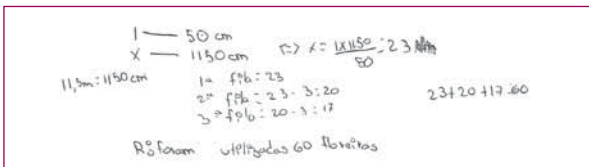 1 — 50 cm
x — 1150 cm => x = 1x1150/50 = 23
11,5m = 1150 cm
1ª fila: 23
2ª fila: 23 - 3 = 20
3ª fila: 20 - 3 = 17
23+20+17=60
R: foram utilizadas 60 floreiras